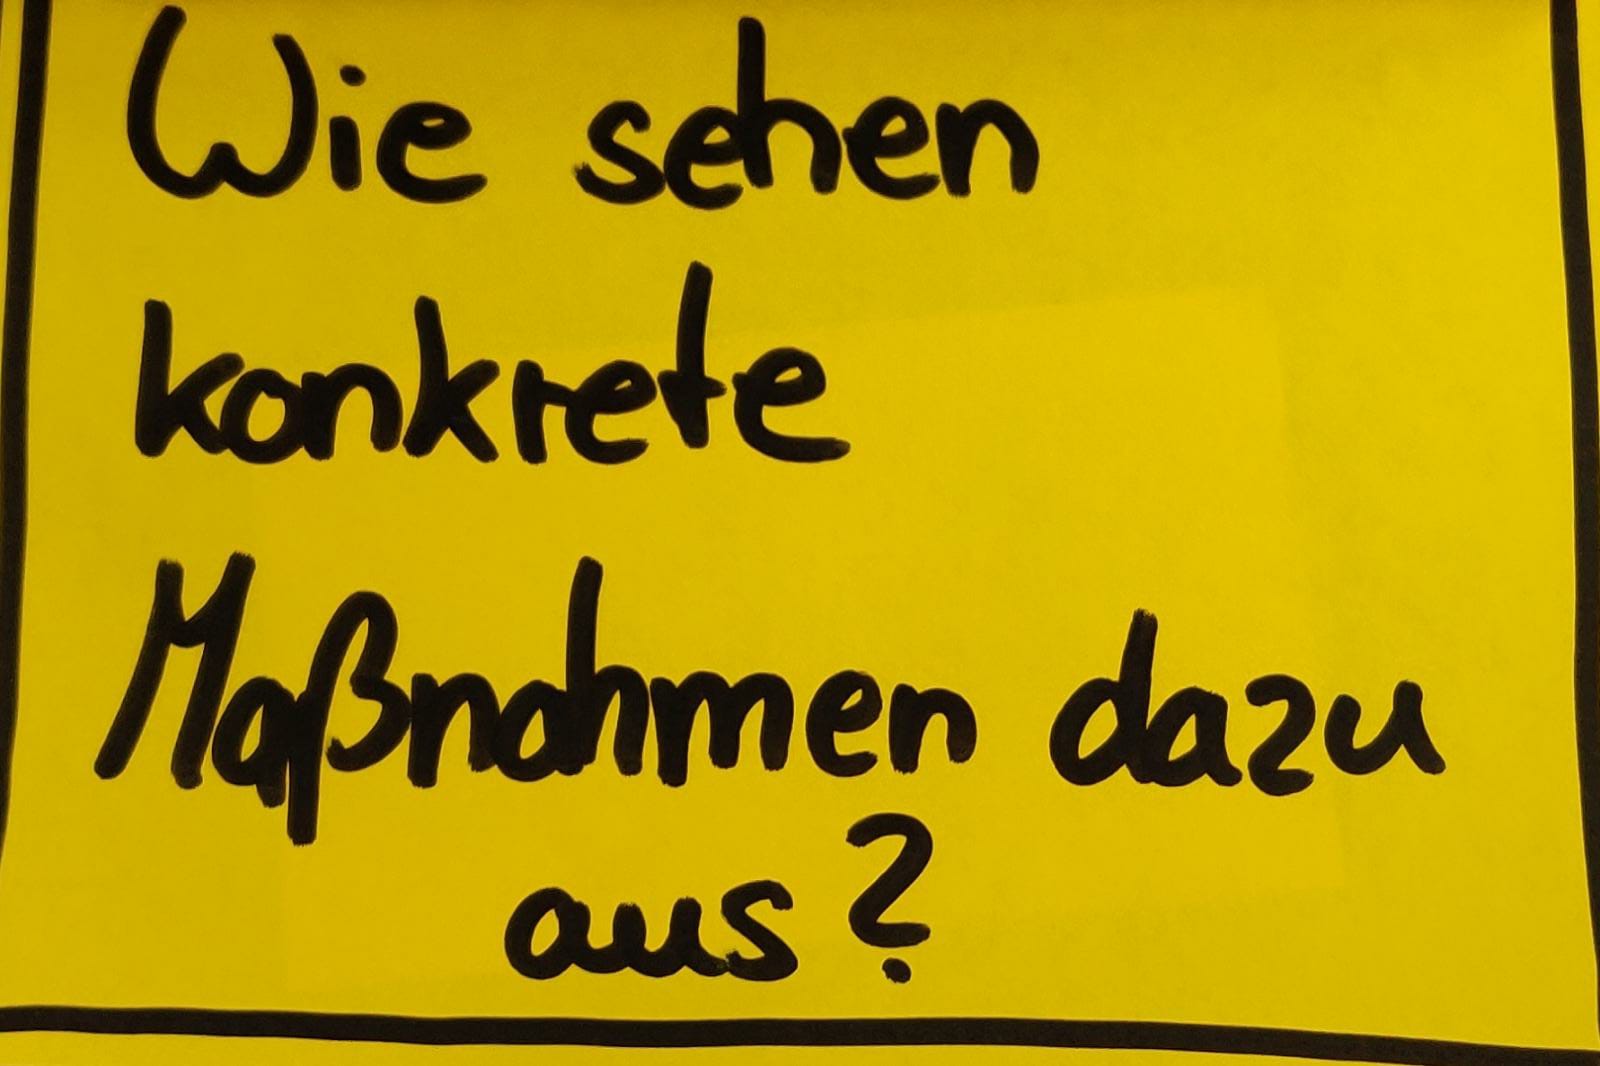 Wie sehen
konkrete
Maßnahmen dazu
aus?